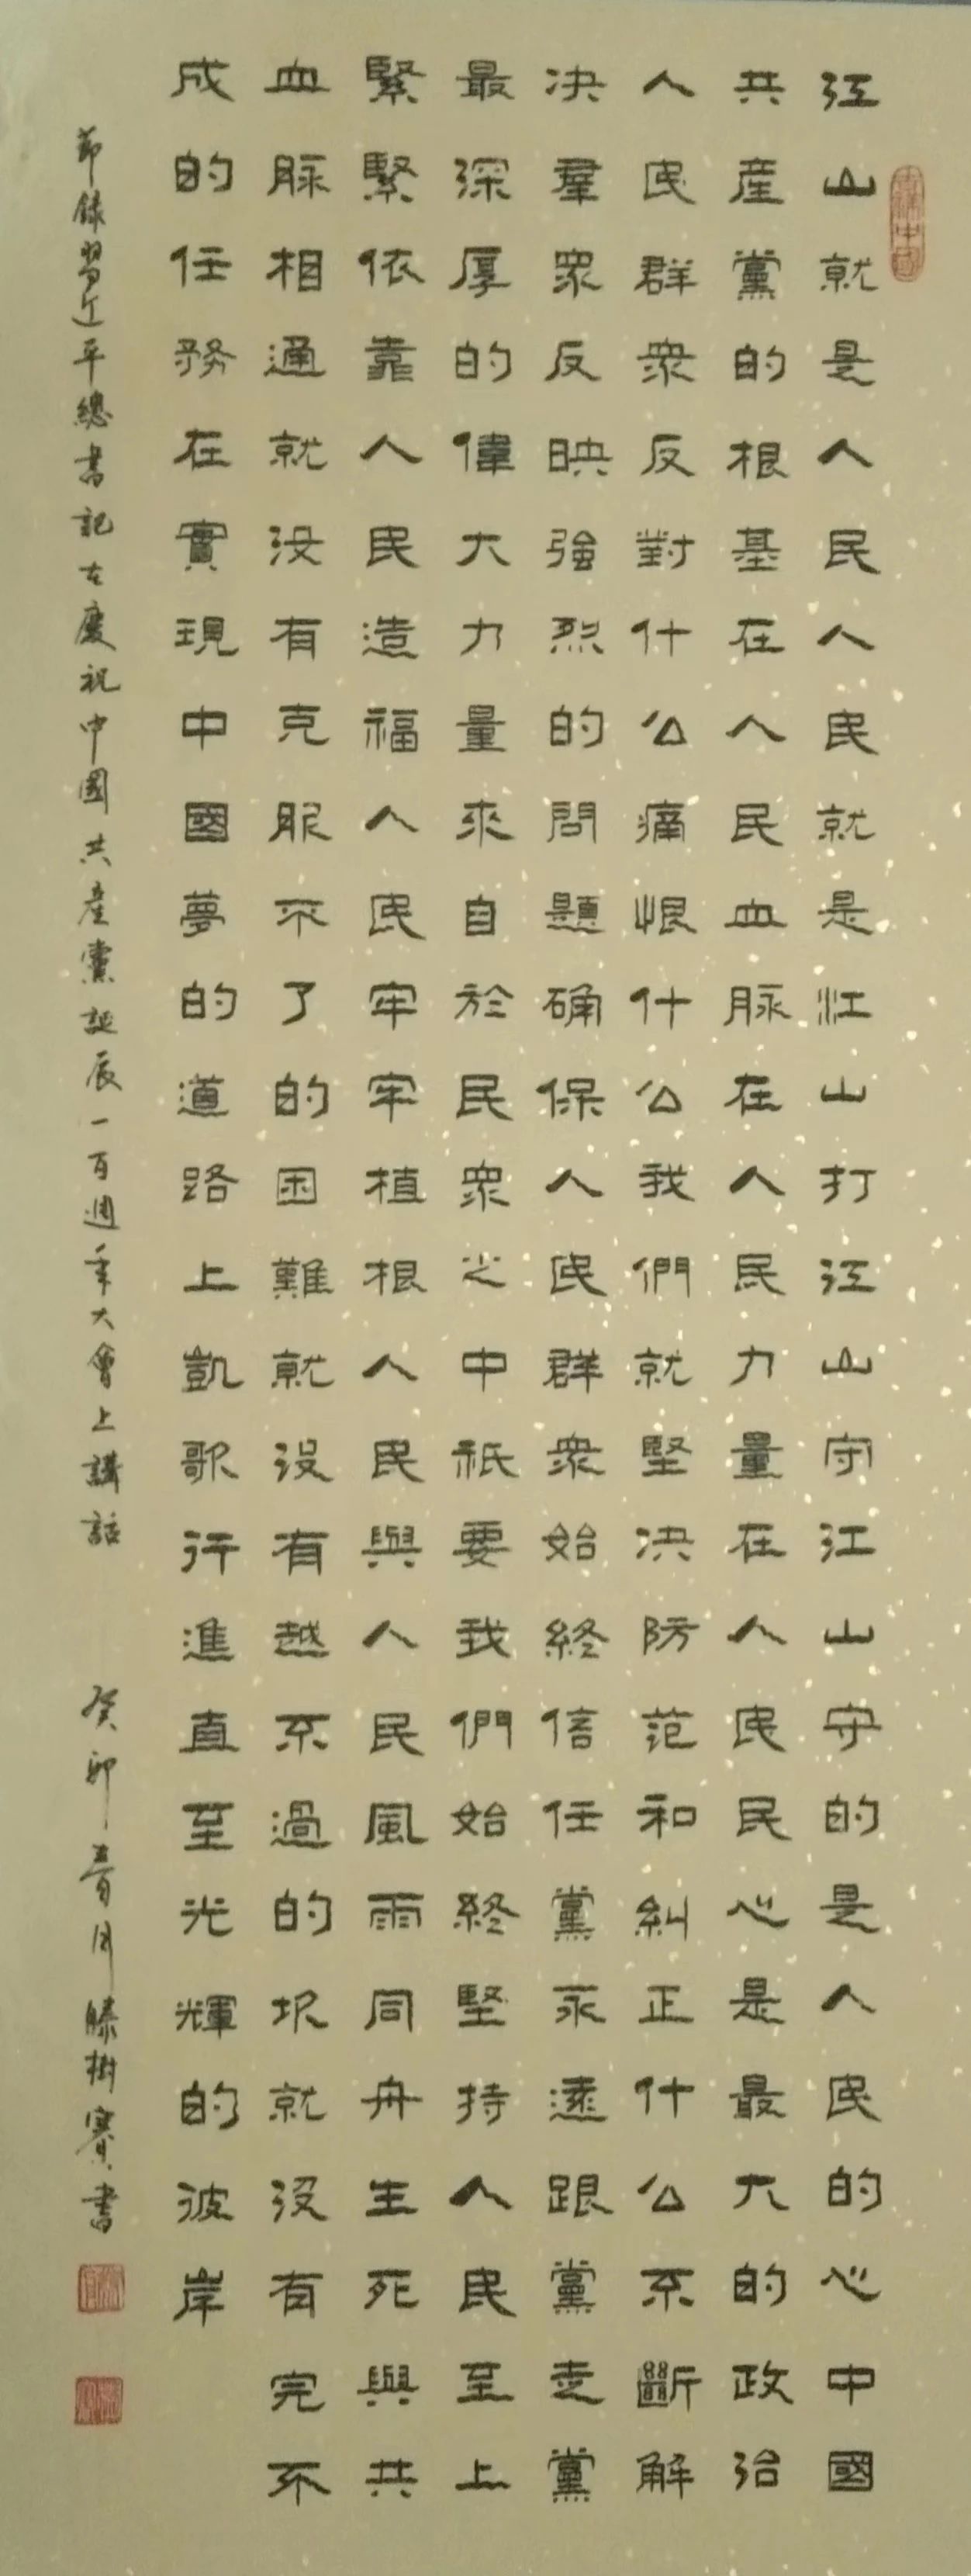 江山就是人民人民就是江山打江山守江山守的是人民的心中國
共産黨的根基在人民血脉在人民力量在人民民心是最大的政治
人民群衆反對什公痛恨什公我們就堅决防范和糾正什公不斷解
决羣眾反映強烈的問題确保人民群衆始終信任黨永遠跟黨走黨
最深厚的偉大力量來自於民眾之中衹要我們始終堅持人民至上
緊緊依靠人民造福人民牢牢植根人民與人民風雨同舟生死與共
血脉相通就没有克服不了的困難就没有越不過的坎就没有完不
成的任務在實現中國夢的道路上凱歌行進直至光輝的彼岸
節錄習近平總書記在慶祝中國共産黨誕辰一百週年大會上講話
癸卯 月滕樹賽書